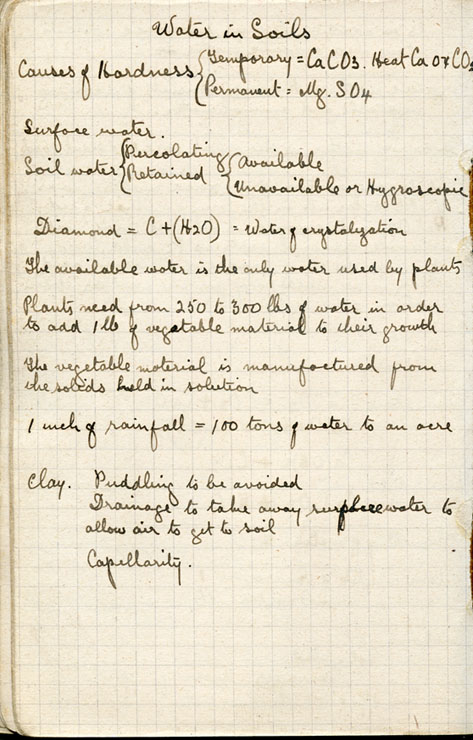 Water in Soils
Causes of Hardness { Temporary = CaCO3. Heat CaO x CO2
( Permanent = Mg. SO4
Surface water.
Soil water { Percolating
Retained { Available
Unavailable or Hygroscopic
Diamond = C + (H2O) = Water of crystalization
The available water is the only water used by plants
Plants need from 250 to 300 lbs of water in order
to add 1 lb of vegatable material to their growth
The vegetable material is manufactured from
the solids held in solution
1 inch of rainfall = 100 tons of water to an acre
Clay. Puddling to be avoided
Drainage to take away water to
allow air to get to soil
Capellarity.